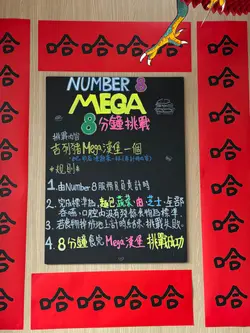 哈哈哈哈
NUMBER 8
MEGA
8分鐘挑戰
挑戰內容
吉列豬Mega漢堡一個
*規則*
1. 由Number8服務員負責計時
2. 完成標準為,麵包蔬菜肉芝士,全部
吞嚥,口腔內沒有殘留食物為標準.
3. 若食物掉於地上計時結束,挑戰失敗.
4. 8分鐘食完Mega漢堡 挑戰成功
哈哈哈哈哈哈
哈哈哈哈哈哈
哈哈哈哈